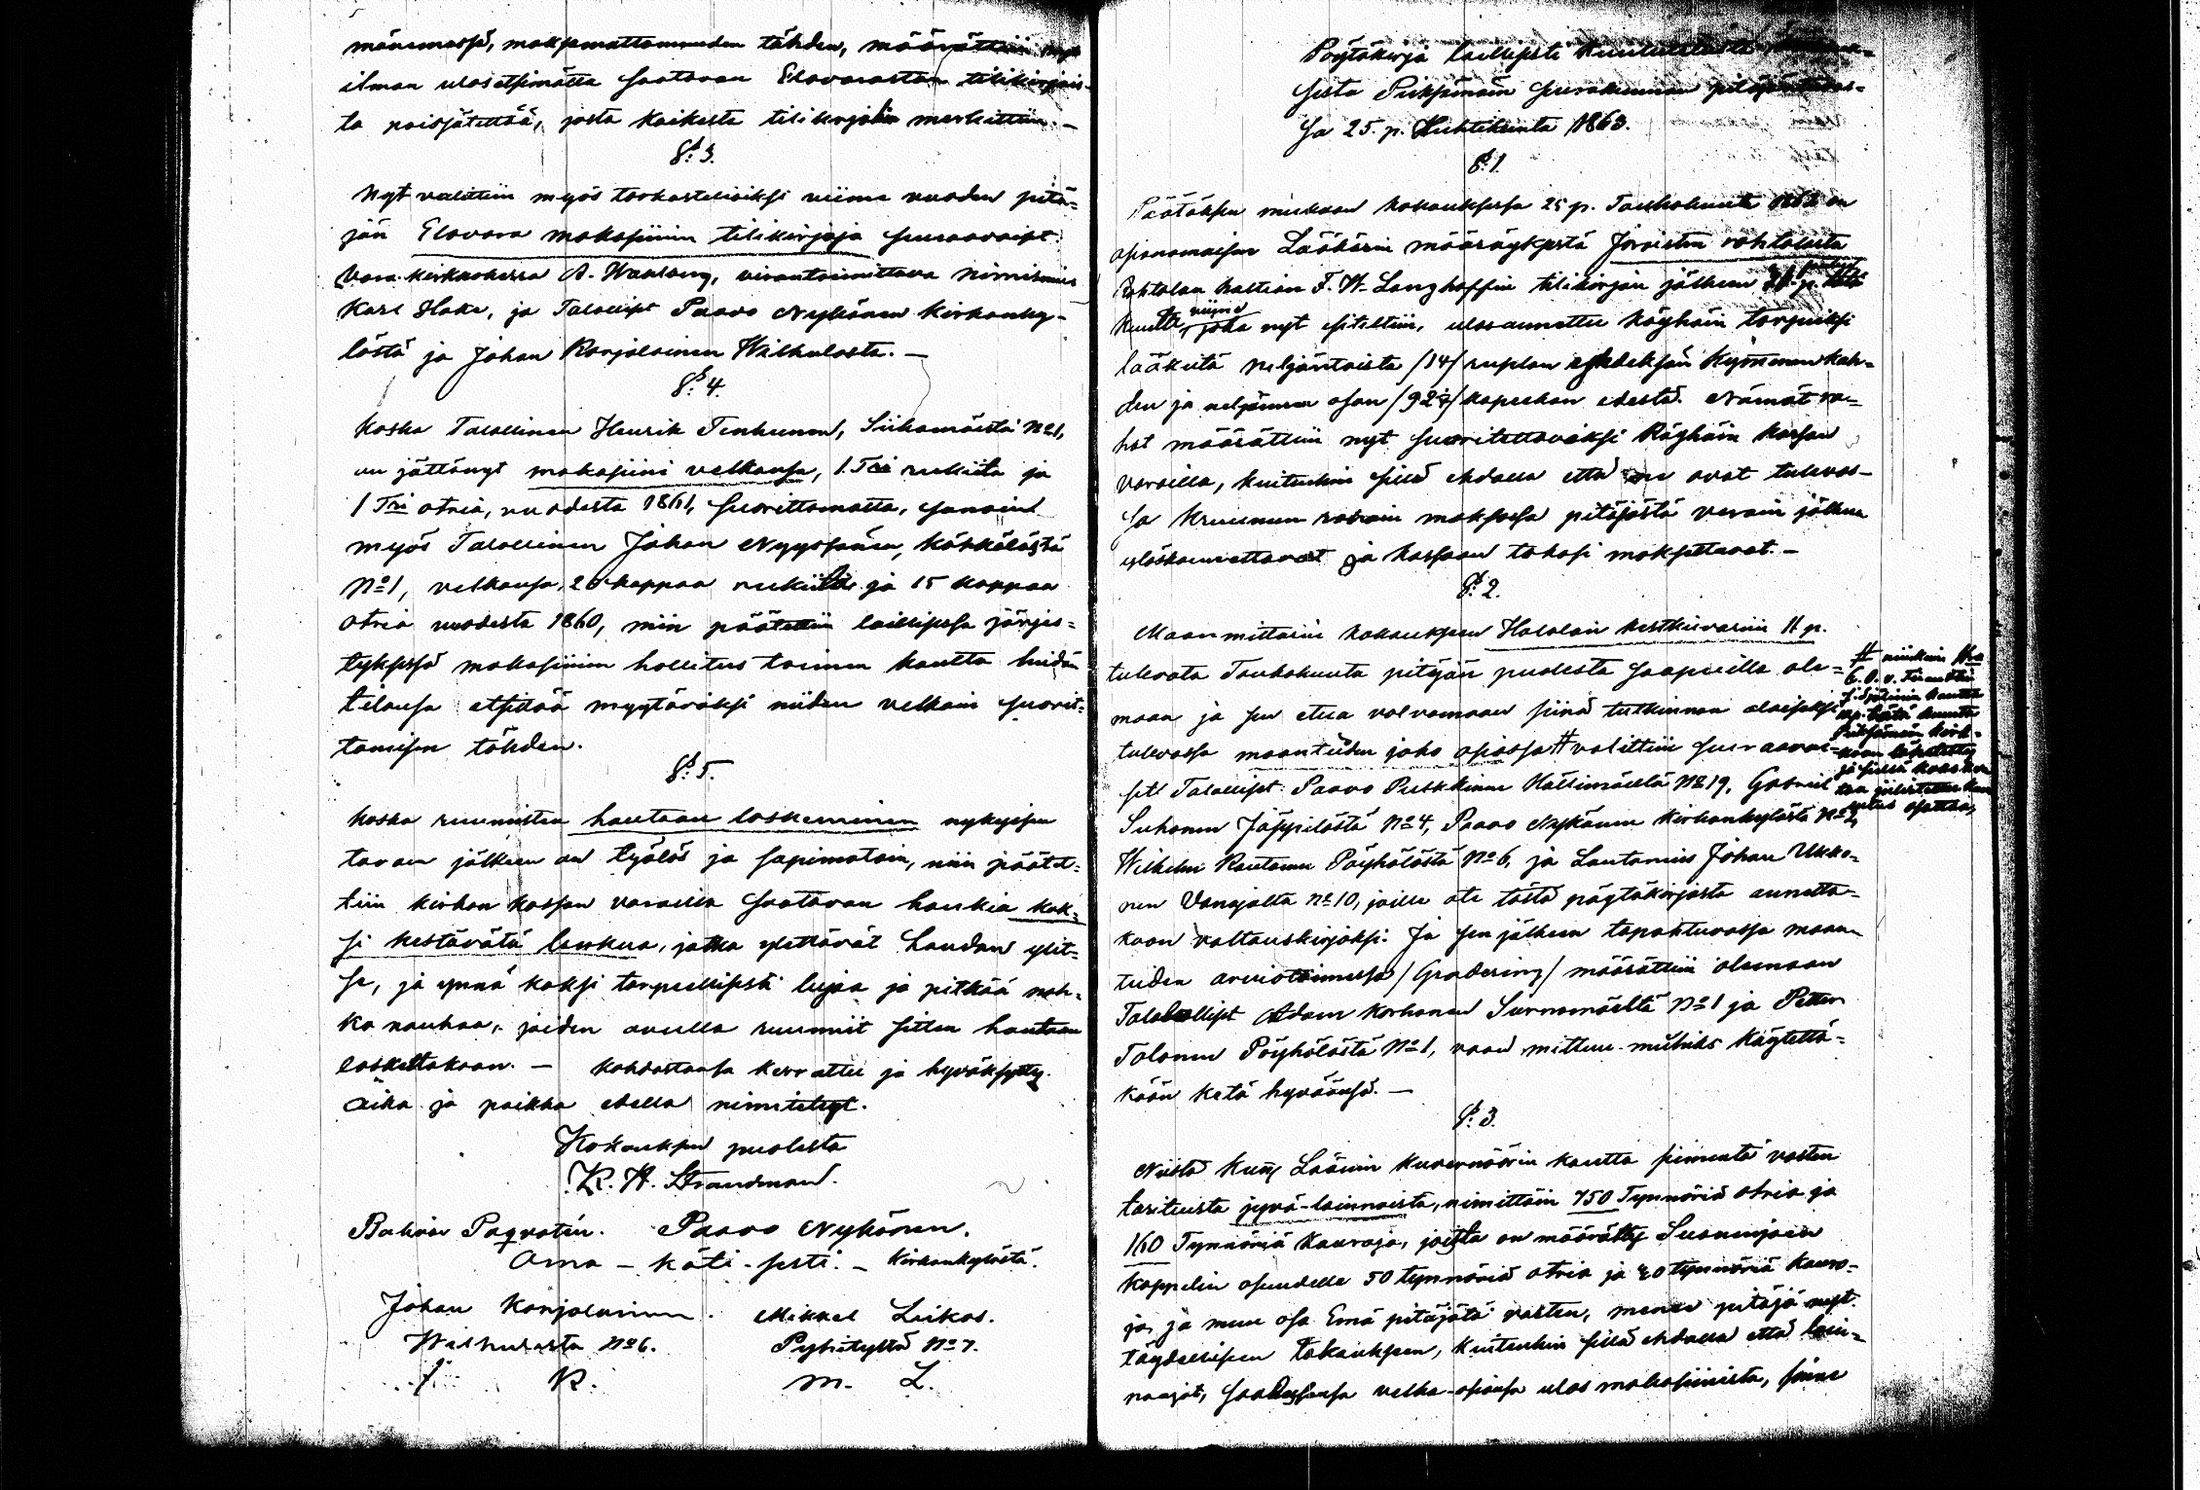 mänemassä, maksamattomuuden tähden, määrättiin nyt
ilman ulosetsimättä saatavan Elovaraston tilikirjois-
ta poisjätettää, josta kaikesta tilikirjohin merkittiin. —
§ 3.
Nyt valittiin myös tarkasteliaiksi viime vuoden pitä-
jän Elovara makasiinin tilikirjoja seuraavaist:
Vara kirkkoherra A. Warsberg, virantoimittava nimismies
Karl Hake, ja Talolliset Paavo Nykänen kirkonky-
löstä ja Johan Karjalainen Wälhulasta. —
§ 4.
Koska Talollinen Henrik Tenhunen, Siikamäestä No 1,
on jättänyt makasiini velkansa, 1 Tri rukiita ja
1 Tri otria, vuodesta 1861, suorittamatta, samoin
myös Talollinen Johan Nyyssönen, Käskälästä
No 1, velkansa, 20 kappaa rukiita ja 15 kappaa
otria vuodesta 1860, niin päätettiin laillisessa järjes-
tyksessä makasiinin hallitus toimen kautta heidän
tilansa etsittää myytäväksi niiden velkain suorit-
tamisen tähden.
§ 5.
Koska ruumisten hautaan laskeminen nykyisen
tavan jälkeen on työläs ja sopimatoin, niin päätet-
tiin kirkon kassan varoilla saatavan hankia kak-
si kestävätä lankua, jotka ylettävät haudan ylit-
se, ja ynnä kaksi tarpeellisesti lujaa ja pitkää nah-
ka nauhaa, joiden avulla ruumiit sitten hautaan
laskettakoon. — Kohdastansa kerrottu ja hyväksytty.
Aika ja paikka edellä nimitetyt.
Kokouksen puolesta
K. H. Strandman.
Paavo Nykänen.
Oma - käti - sesti. - Kirkonkylästä.
Johan Karjalainen. Mikkel Liikas.
Wälhulasta No 6. Pyhityltä No 7.
J. K. M. L.
Pöytäkirja laillisesti kuulutetusta
sesta Pieksämäin seurakunnan pitäjäntuvas-
sa 25 p. Huhtikuuta 1863.
§ 1.
Päätöksen mukaan kokouksessa 25 p. Toukokuuta 1862 on
asianomaisen Lääkärin määräyksestä Joroisten rohtolasta
Rohtolan haltian F. W. Langhoffin tilikirjan jälkeen
kuuta, joka nyt esiteltiin, ulosannettu köyhäin tarpeiksi
lääkeitä neljäntoista /14/ ruplan yhdeksän kymmenen kah-
den ja neljännen osan /92¼/ kopeekan edestä. Nämät ra-
hat määrättiin nyt suoritettavaksi Köyhäin kassan
varoilla, kuitenkin sillä ehdolla että ne ovat tulevas-
sa kruunun rahain maksossa pitäjästä verain jälkeen
ylöskannettavat ja kassaan takasi maksettavat. —
§ 2.
Maanmittarin kokouksen Halolan kestkievariin 11 p.
tulevata Toukokuuta pitäjän puolesta saapuvilla ole-
maan ja sen etua valvomaan siinä tutkinnon alaiseksi
tulevassa maanteiden jako asiassa # valittiin seuraavai-
set: Talolliset Paavo Puskkinen Hällimäeltä No 19, Gabriel
Suhonen Jäppilästä No 4, Paavo Nykänen Kirkonkylästä No 2,
Wilhelm Rautanen Pöyhölästä No 6, ja Lautamies Johan Ukko-
nen Vanajalta No 10, joille ote tästä pöytäkirjasta annetta-
koon valtauskirjaksi. Ja sen jälkeen tapahtuvassa maan-
teiden arviotoimessa /Gradering/ määrättiin olemaan
Talolliset Adam Korhonen Surnumäeltä No 1 ja Petter
Tolonen Pöyhölästä No 1, vaan mittuu miehiks käytettä-
köön ketä hyväänsä. —
# niinkuin
ja siellä
§ 3.
Niistä Kuop. Läänin kuvernöörin kautta siementä vasten
tarituista jyvä-lainnoista, nimittäin 750 Tynnöriä otria ja
160 Tynnöriä kauroja, joista on määrätty Suonenjoen
kappelin osuudelle 50 tynnöriä otria ja 20 tynnöriä kauro-
ja, ja muu osa Emä pitäjätä vasten, menee pitäjä nyt
täydellisen takauksen, kuitenkin sillä ehdolla että lain-
naajat, saadessansa velka-osansa ulos makasiinista, sinne